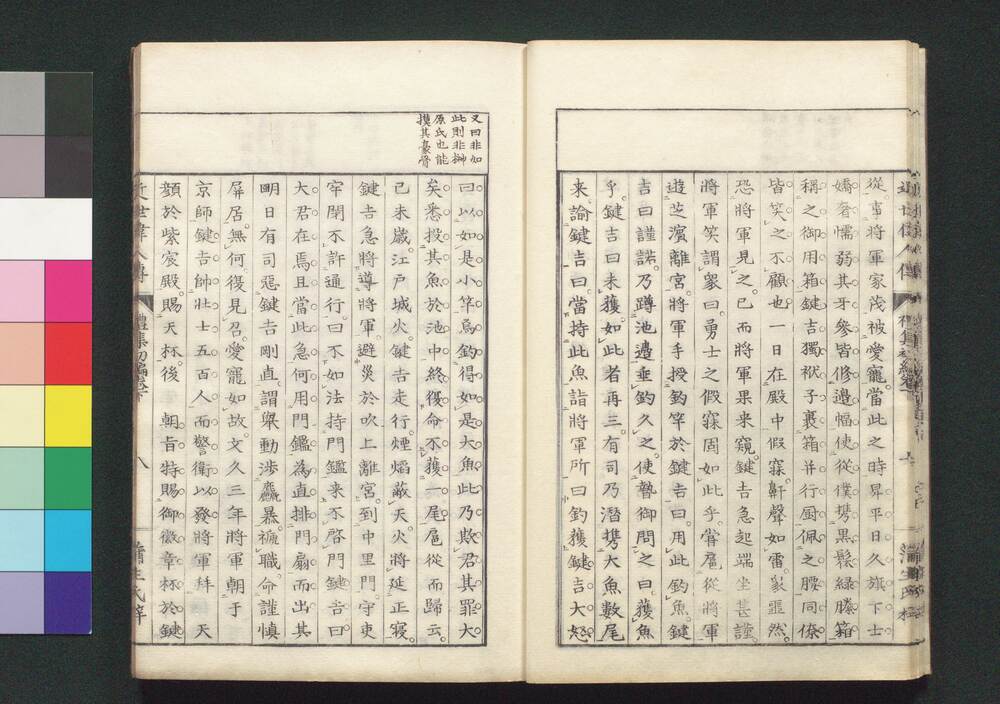 從事將軍家茂被愛寵當此之時昇平日久旗下士
嬌奢懦弱其牙參皆修邊幅使從僕携黒鬆綠縢箱
稱之御用箱鍵吉獨袱子裹箱并行厨佩之腰同僚
皆笑之不顧也一日在殿中假寐鼾聲如雷衆噩然
恐將軍見之已而將軍果来窺鍵吉急起端坐甚謹
將軍笑謂衆曰勇士之假寐固如此乎嘗扈從將軍
遊芝濱離宮將軍手授釣竿於鍵吉曰用此釣魚鍵
吉曰謹諾乃蹲池邊垂釣久之使暬御問之曰獲魚
乎鍵吉曰未獲如此者再三有司乃潛携大魚數尾
来諭鍵吉曰當持此魚詣將軍所曰釣獲鍵吉大怒
又曰非如
此則非榊
原氏也能
摸其豪骨
曰以如是小竿烏釣得如是大魚此乃欺君其罪大
矣悉投其魚於池中終復命不獲一尾扈從而歸云
已未歲江戸城火鍵吉走行煙焰蔽天火將延正寢
鍵吉急將導將軍避災於吹上離宮到中里門守吏
牢閉不許通行曰不如法持門鑑来不啓門鍵吉曰
大君在焉且當此急何用門鑑為直排門扇而出其
明日有司惡鍵吉剛直謂擧動渉麤暴褫職命謹愼
屏居無何復見召愛寵如故文久三年將軍朝于
京師鍵吉帥壯士五百人而警衛以發將軍拜天
顔於紫宸殿賜天杯後朝旨特賜御徽章杯於鍵
近世偉人傳
禮集初編卷下
八
蒲生氏梓